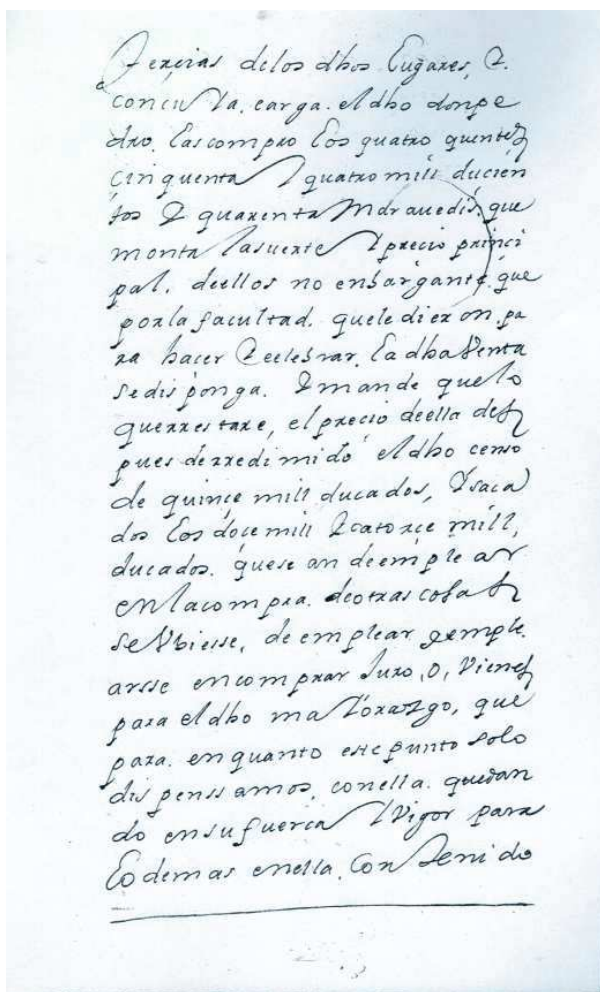 Tercias delos dhos Lugares, Y.
concu Ya. carga. el dho donpe
dro. Las compro Los quatro quentos
cinquenta Y quatro mill ducien
tos Y quarenta Mdrauedis. que
monta lasuerte Y precio princi
pal. deellos no enbargante. que
porla facultad. quele dieron. pa
ra hacer Y celebrar. La dha Venta
se dis ponga. Y mande que lo
querrestare, el precio deella des
pues derredimido el dho censo
de quince mill ducados, Y saca
dos Los doce mill Y catorce mill,
ducados. quese an deemple ar
en lacompra. deotras cosas
se Vbiesse, de emplear y emple.
arsse encomprar Juro, o, Vienes
para el dho maYorazgo, que
para. enquanto este punto solo
dis penssamos, conella. quedan
do ensufuerca Y Vigor para
Lo demas enella. Con tenido